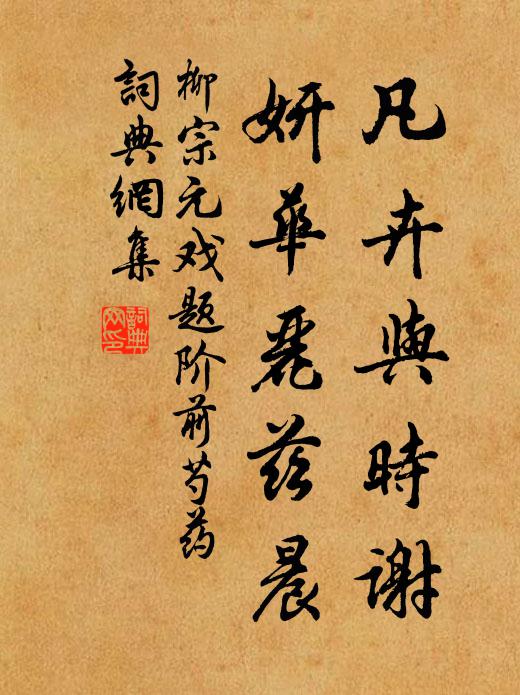 凡卉與時謝
妍華麗茲晨
柳宗元戏题阶前芍药
詞典網集
詞典網印